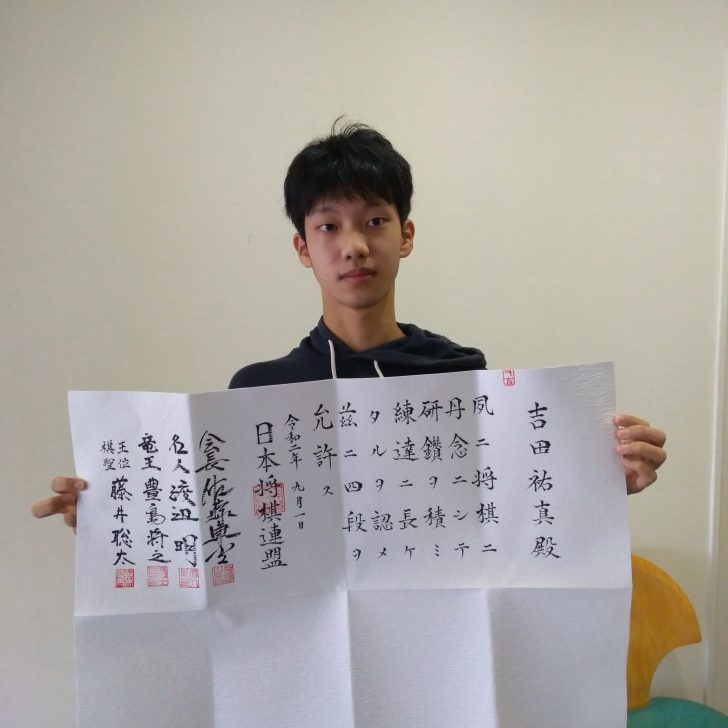 吉田祐真殿
夙ニ将棋ニ
丹念ニシテ
研鑽ヲ積ミ
練達ニ長ケ
タルヲ認メ
茲ニ四段ヲ
允許ス
令和二年九月一日
日本将棋連盟
会長佐藤康光
名人渡辺明
竜王豊島将之
王位
棋聖
藤井聡太